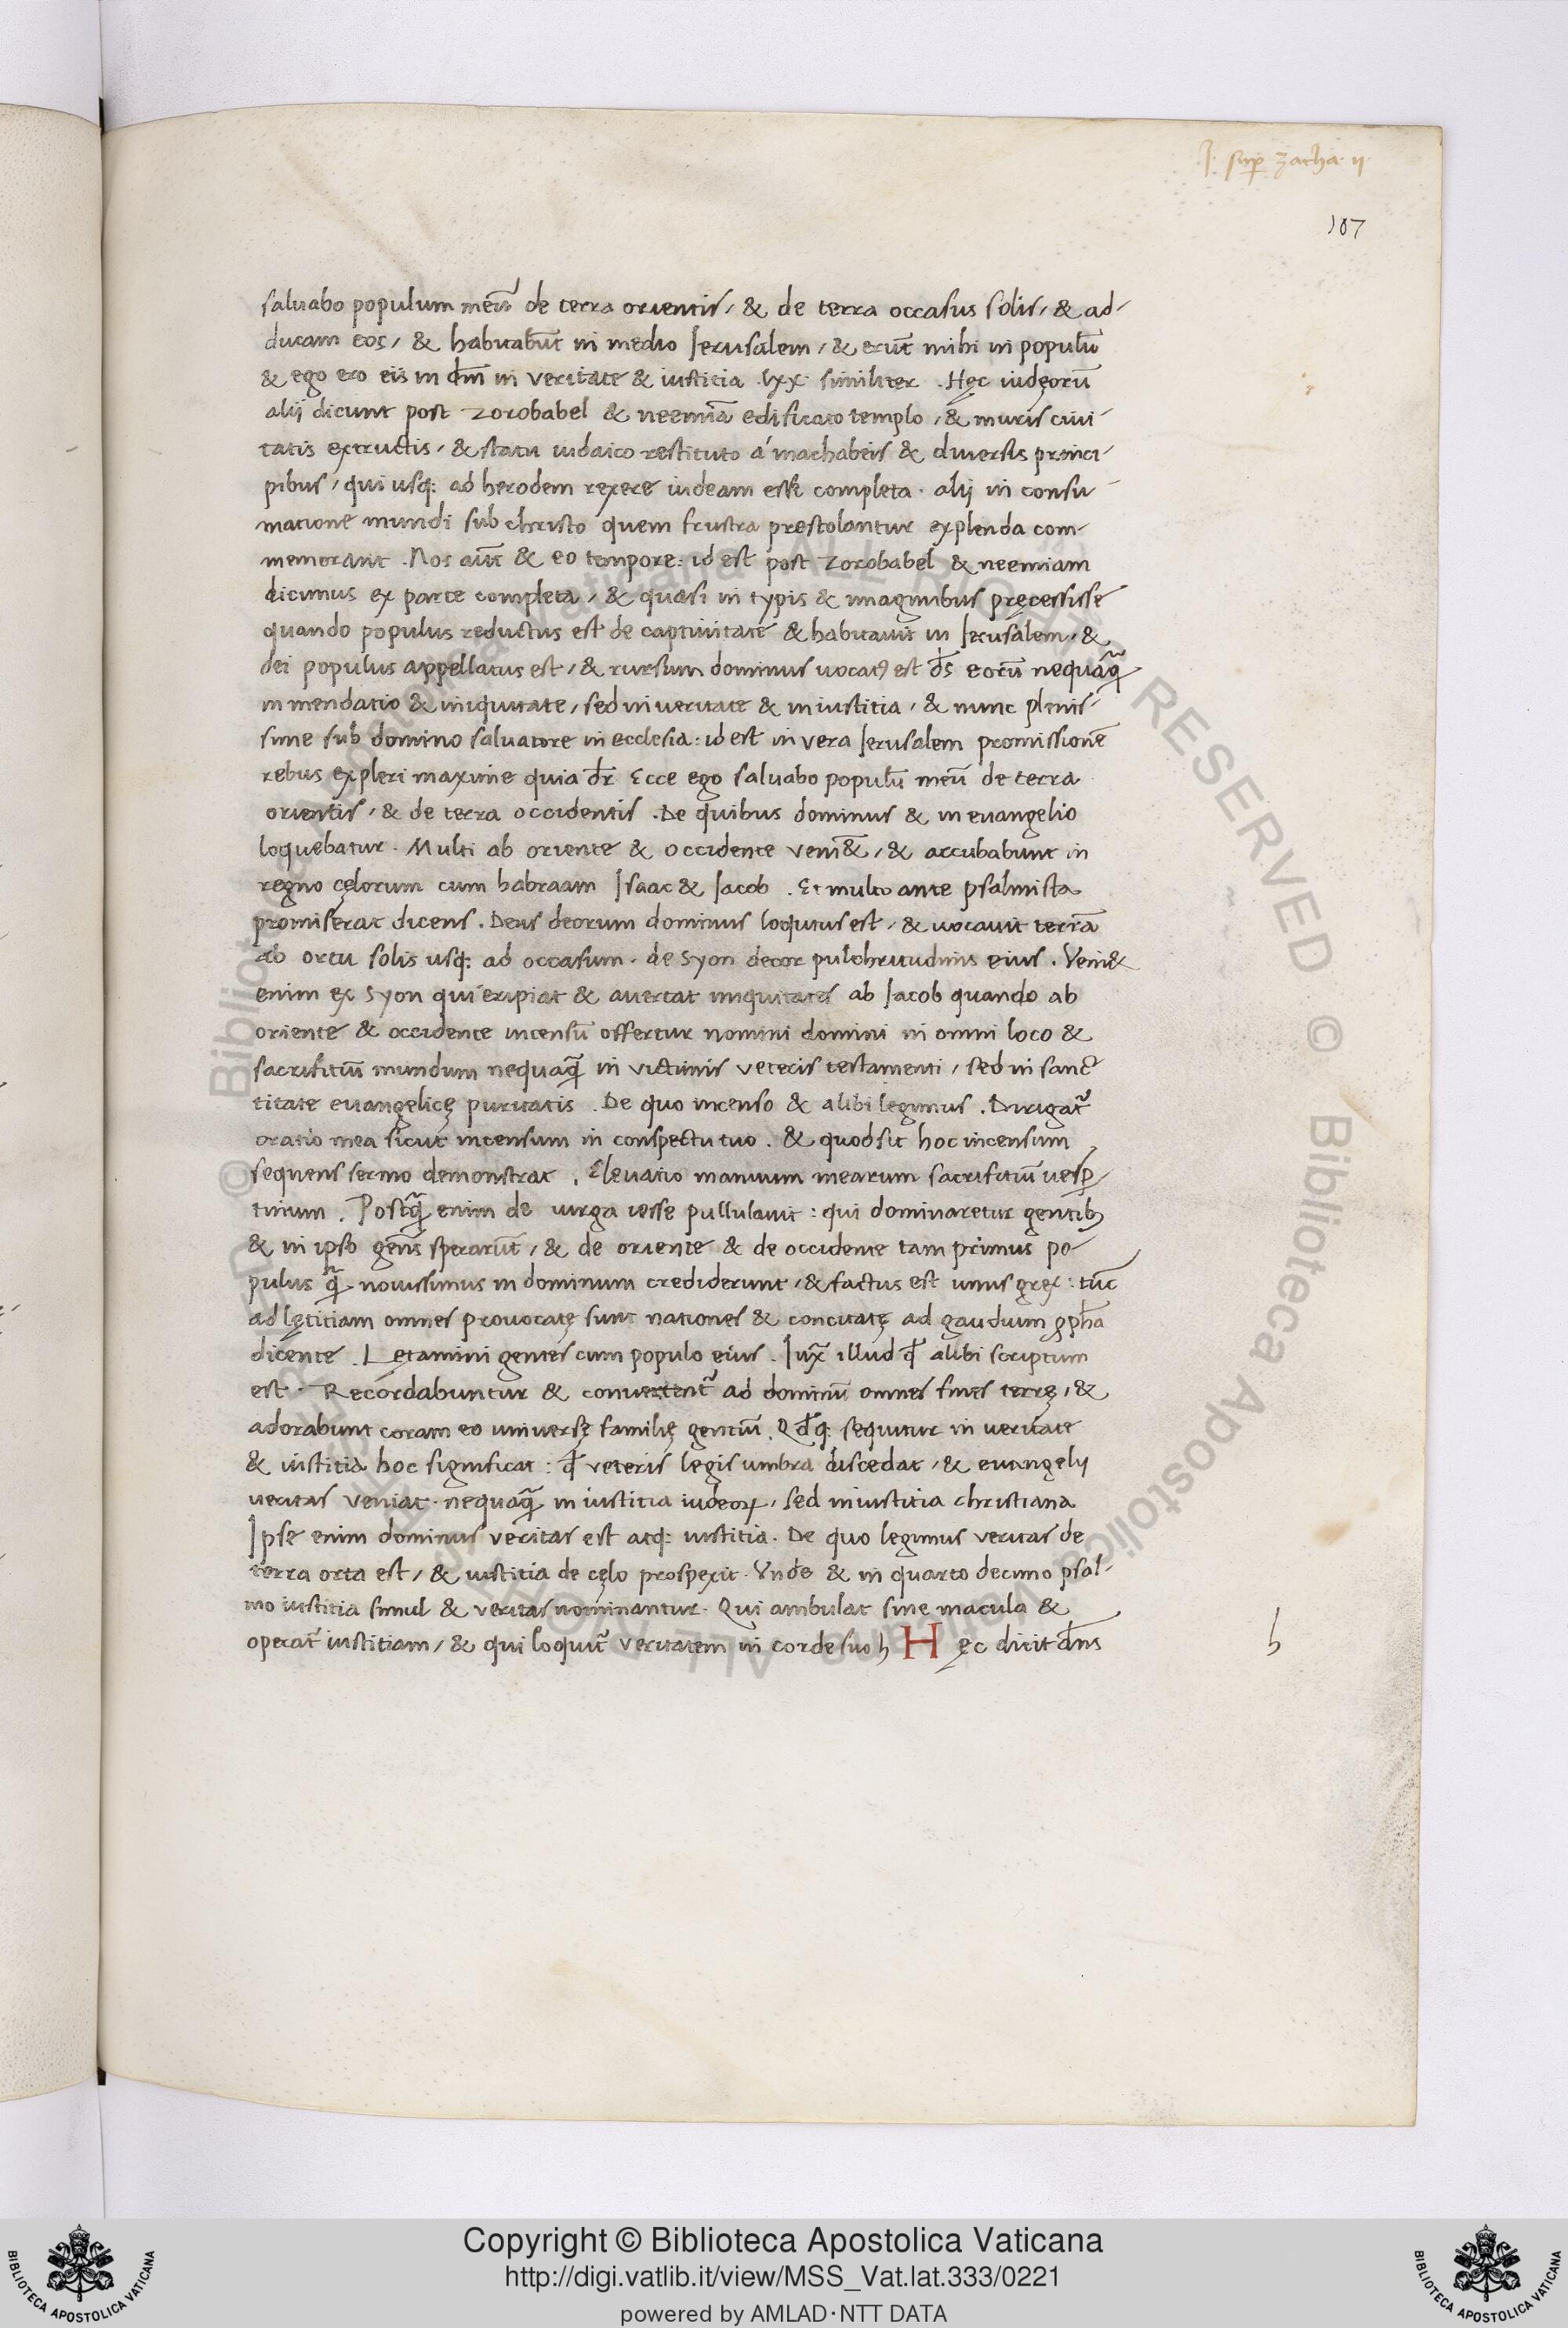 J. sup̄ zacha. ij.
107
saluabo populum meū de terra orientis, & de terra occasus solis, & ad-
ducam eos, & habitabūt in medio Jerusalem, & erūt mihi in populū
& ego ero eis in dm̄ in veritate & iusticia . lxx. similiter . Hęc iudęorū
alij dicunt post zorobabel & neemiā edificato templo, & muris ciui-
tatis extructis, & statu iudaico restituto á machabeis & diuersis princi-
pibus, qui usq: ad herodem rexere iudeam esse completa . alij in consu-
matione mundi sub christo quem frustra prestolantur explenda com-
memorant . Nos aūt & eo tempore: id est post zorobabel & neemiam
dicimus ex parte completa, & quasi in typis & imaginibus pręcessisse
quando populus reductus est de captiuitate & habitauit in Jerusalem, &
dei populus appellatus est, & rursum dominus uocatꝰ est d̄s eorū nequaq̄
in mendatio & iniquitate, sed in ueritate & in iustitia, & nunc plenis-
sime sub domino saluatore in ecclesia: id est in vera Jerusalem promissionē
rebus expleri maxime quia dr̄ Ecce ego saluabo populū meū de terra
orientis, & de terra occidentis . De quibus dominus & in euangelio
loquebatur . Multi ab oriente & occidente veni&̄, & accubabunt in
regno cęlorum cum habraam Jsaac & Jacob . Et multo ante psalmista
promiserat dicens . Deus deorum dominus loqutus est, & uocauit terrā
ab ortu solis usq: ad occasum . de syon decor pulchritudinis eius . Veni&
enim ex syon qui eripiat & auertat iniquitates ab Jacob quando ab
oriente & occidente incensū offertur nomini domini in omni loco &
sacrifitiū mundum nequaq̄ in victimis veteris testamenti, sed in sanc-
titate euangelicę puritatis . De quo incenso & alibi legimus . Dirigat᷑
oratio mea sicut incensum in conspectu tuo . & quod sit hoc incensum
sequens sermo demonstrat . Eleuatio manuum mearum sacrifitiū uesp̄-
tinum . Postq̄ enim de uirga iesse pullulauit : qui dominaretur gentibꝫ
& in ipso gen̄s sperarūt, & de oriente & de occidente tam primus po-
pulus q̄ nouissimus in dominum crediderunt, & factus est unus grex : tūc
ad lętitiam omnes prouocatę sunt nationes & concitatę ad gaudium ꝓph̄a
dicente . Letamini gentes cum populo eius . Jux̄ illud qđ alibi scriptum
est . Recordabuntur & conuertent᷑ ad dominū omnes fines terrę, &
adorabunt coram eo uniuersę familię gentiū . Qđq: sequitur in ueritate
& iustitia hoc significat : qđ veteris legis umbra discedat, & euangelij
ueritas veniat . nequaq̄ in iustitia iudeoꝝ, sed in iustitia christiana
Jpse enim dominus veritas est atq: iustitia . De quo legimus veritas de
terra orta est, & iustitia de cęlo prospexit . Vnde & in quarto decimo psal-
mo iustitia simul & veritas nominantur . Qui ambulat sine macula &
operat᷑ iustitiam, & qui loquit᷑ veritatem in corde suo h Hęc dicit dn̄s
h
Copyright © Biblioteca Apostolica Vaticana
http://digi.vatlib.it/view/MSS_Vat.lat.333/0221
powered by AMLAD·NTT DATA
BIBLIOTECA APOSTOLICA VATICANA
BIBLIOTECA APOSTOLICA VATICANA